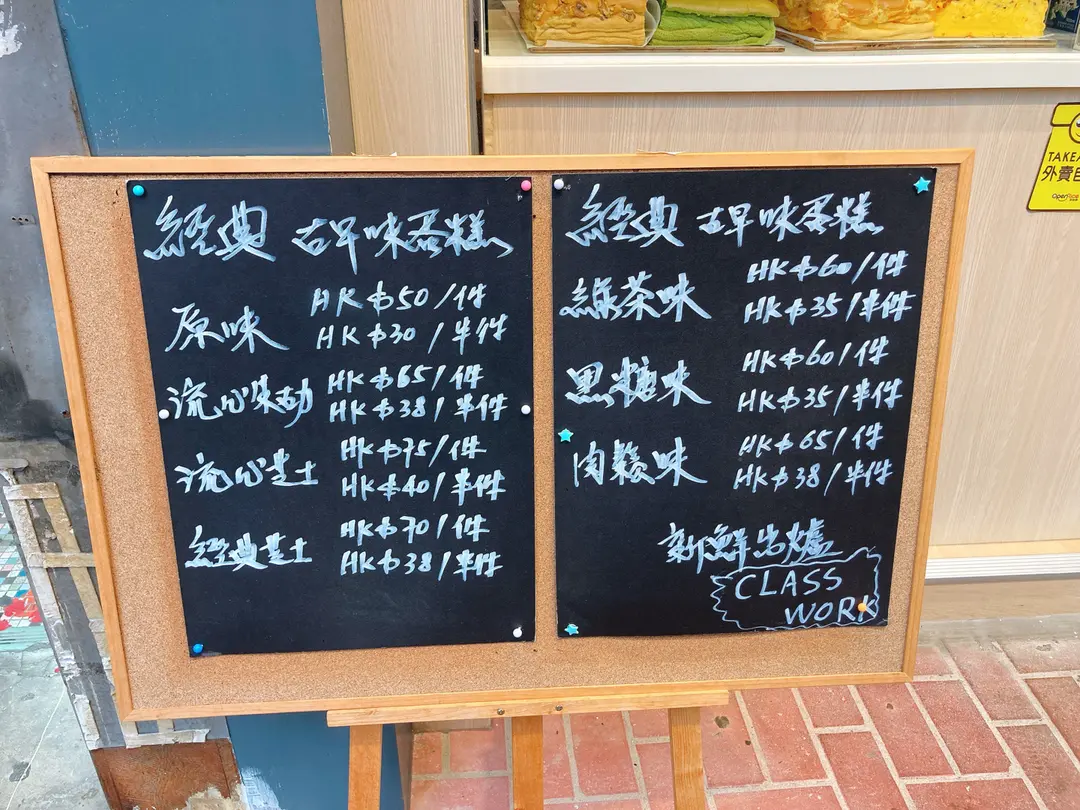 經典 古早味蛋糕
原味 HK$50/件
HK$30/半件
流心朱古力 HK$65/件
HK$38/半件
流心芝士 HK$75/件
HK$40/半件
經典芝士 HK$70/件
HK$38/半件
經典 古早味蛋糕
綠茶味 HK$60/件
HK$35/半件
黑糖味 HK$60/件
HK$35/半件
肉鬆味 HK$65/件
HK$38/半件
新鮮出爐
CLASS
WORK
外賣自
OpenRice